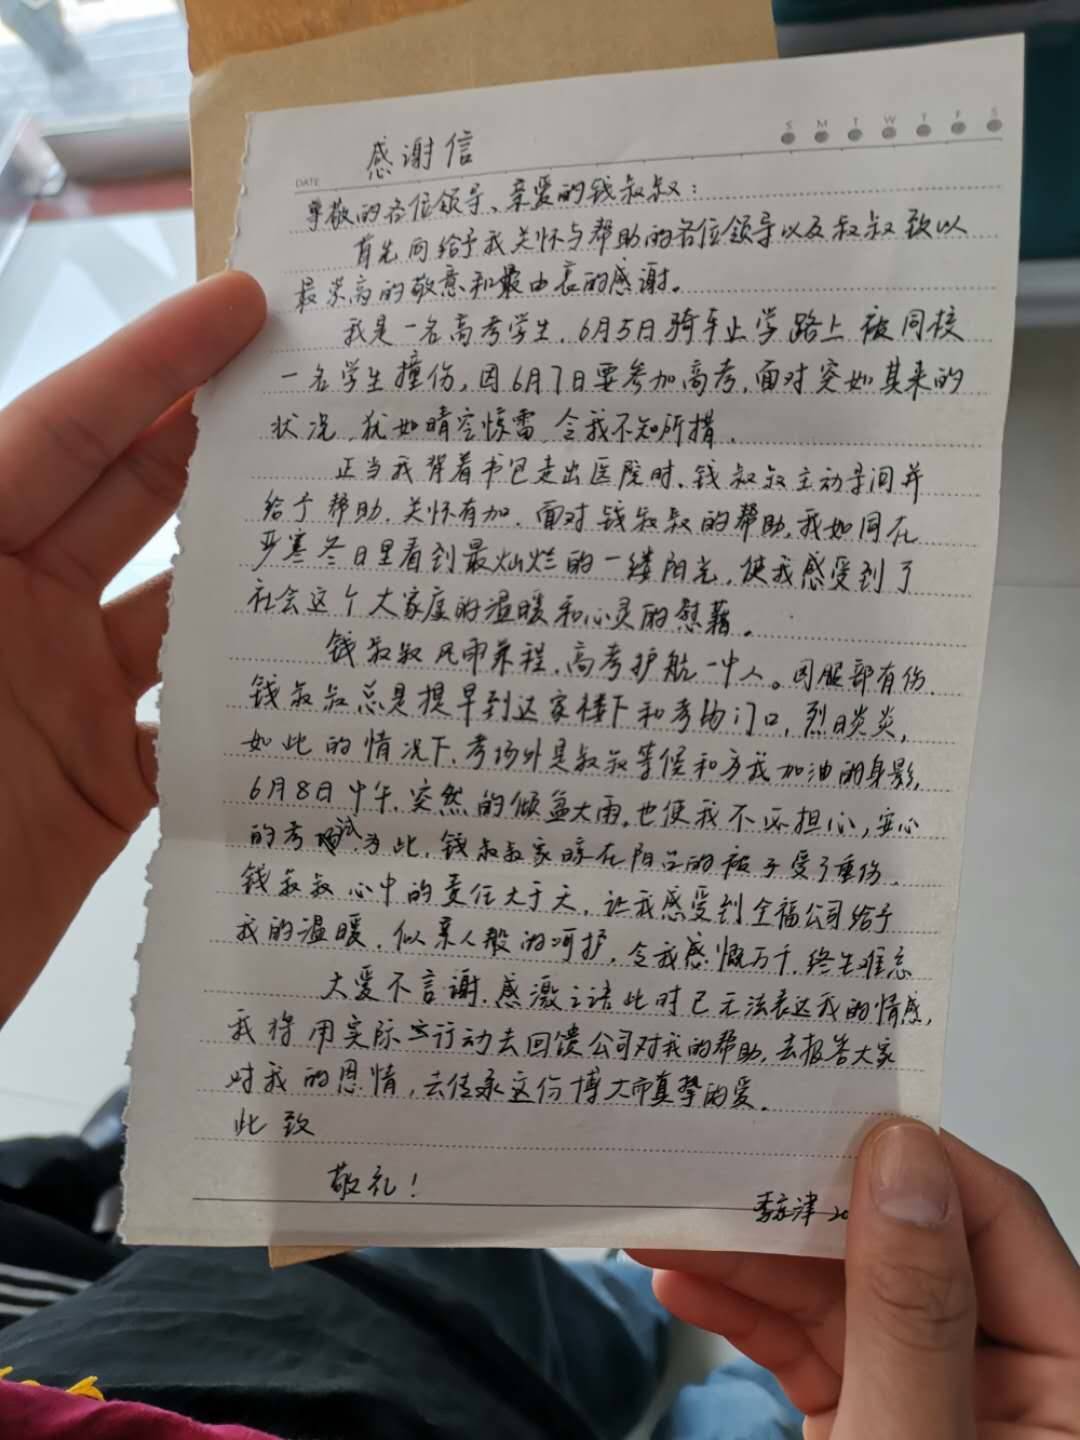 S M T W T F S
DATE
感谢信
尊敬的各位领导、亲爱的钱叔叔：
首先向给予我关怀与帮助的各位领导以及叔叔致以
最崇高的敬意和最由衷的感谢。
我是一名高考学生，6月5日骑车上学路上被同校
一名学生撞伤，因6月7日要参加高考，面对突如其来的
状况，犹如晴空惊雷，令我不知所措。
正当我背着书包走出医院时，钱叔叔主动寻问并
给予帮助，关怀有加，面对钱叔叔的帮助，我如同在
严寒冬日里看到最灿烂的一缕阳光，使我感受到了
社会这个大家庭的温暖和心灵的慰藉。
钱叔叔风雨兼程，高考护航一中人。因腿部有伤，
钱叔叔总是提早到达家楼下和考场门口，烈日炎炎，
如此的情况下，考场外是叔叔等候和为我加油的身影，
6月8日中午，突然的倾盆大雨，也使我不必担心，安心
的考试，为此，钱叔叔家晾在阳台的被子受了重伤，
钱叔叔心中的责任大于天，让我感受到全福公司给予
我的温暖，似亲人般的呵护，令我感慨万千，终生难忘
大爱不言谢，感激之语此时已无法表达我的情感，
我将用实际行动去回馈公司对我的帮助，去报答大家
对我的恩情，去传承这份博大而真挚的爱。
此致
敬礼！
津 20